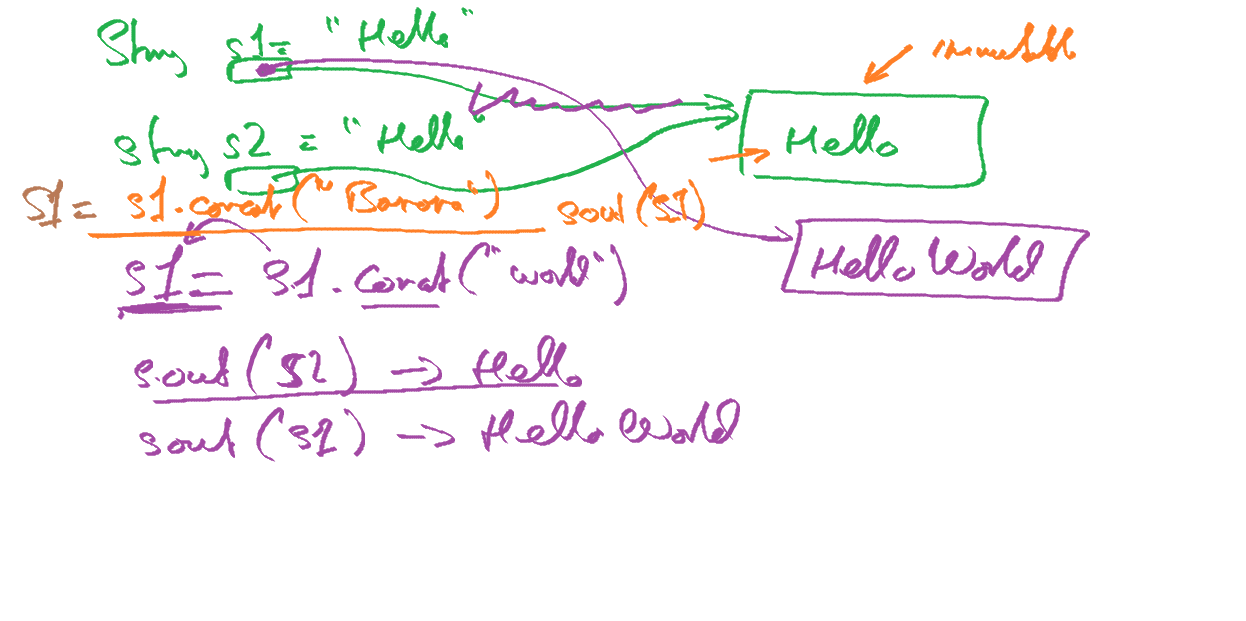 String s1= "Hello"
immutable
String s2 = "Hello"
Hello
S1= s1.concat("Banana") sout(S1)
s1= s1.concat("world")
Hello World
sout(s2) → Hello
sout(s1) → Hello World